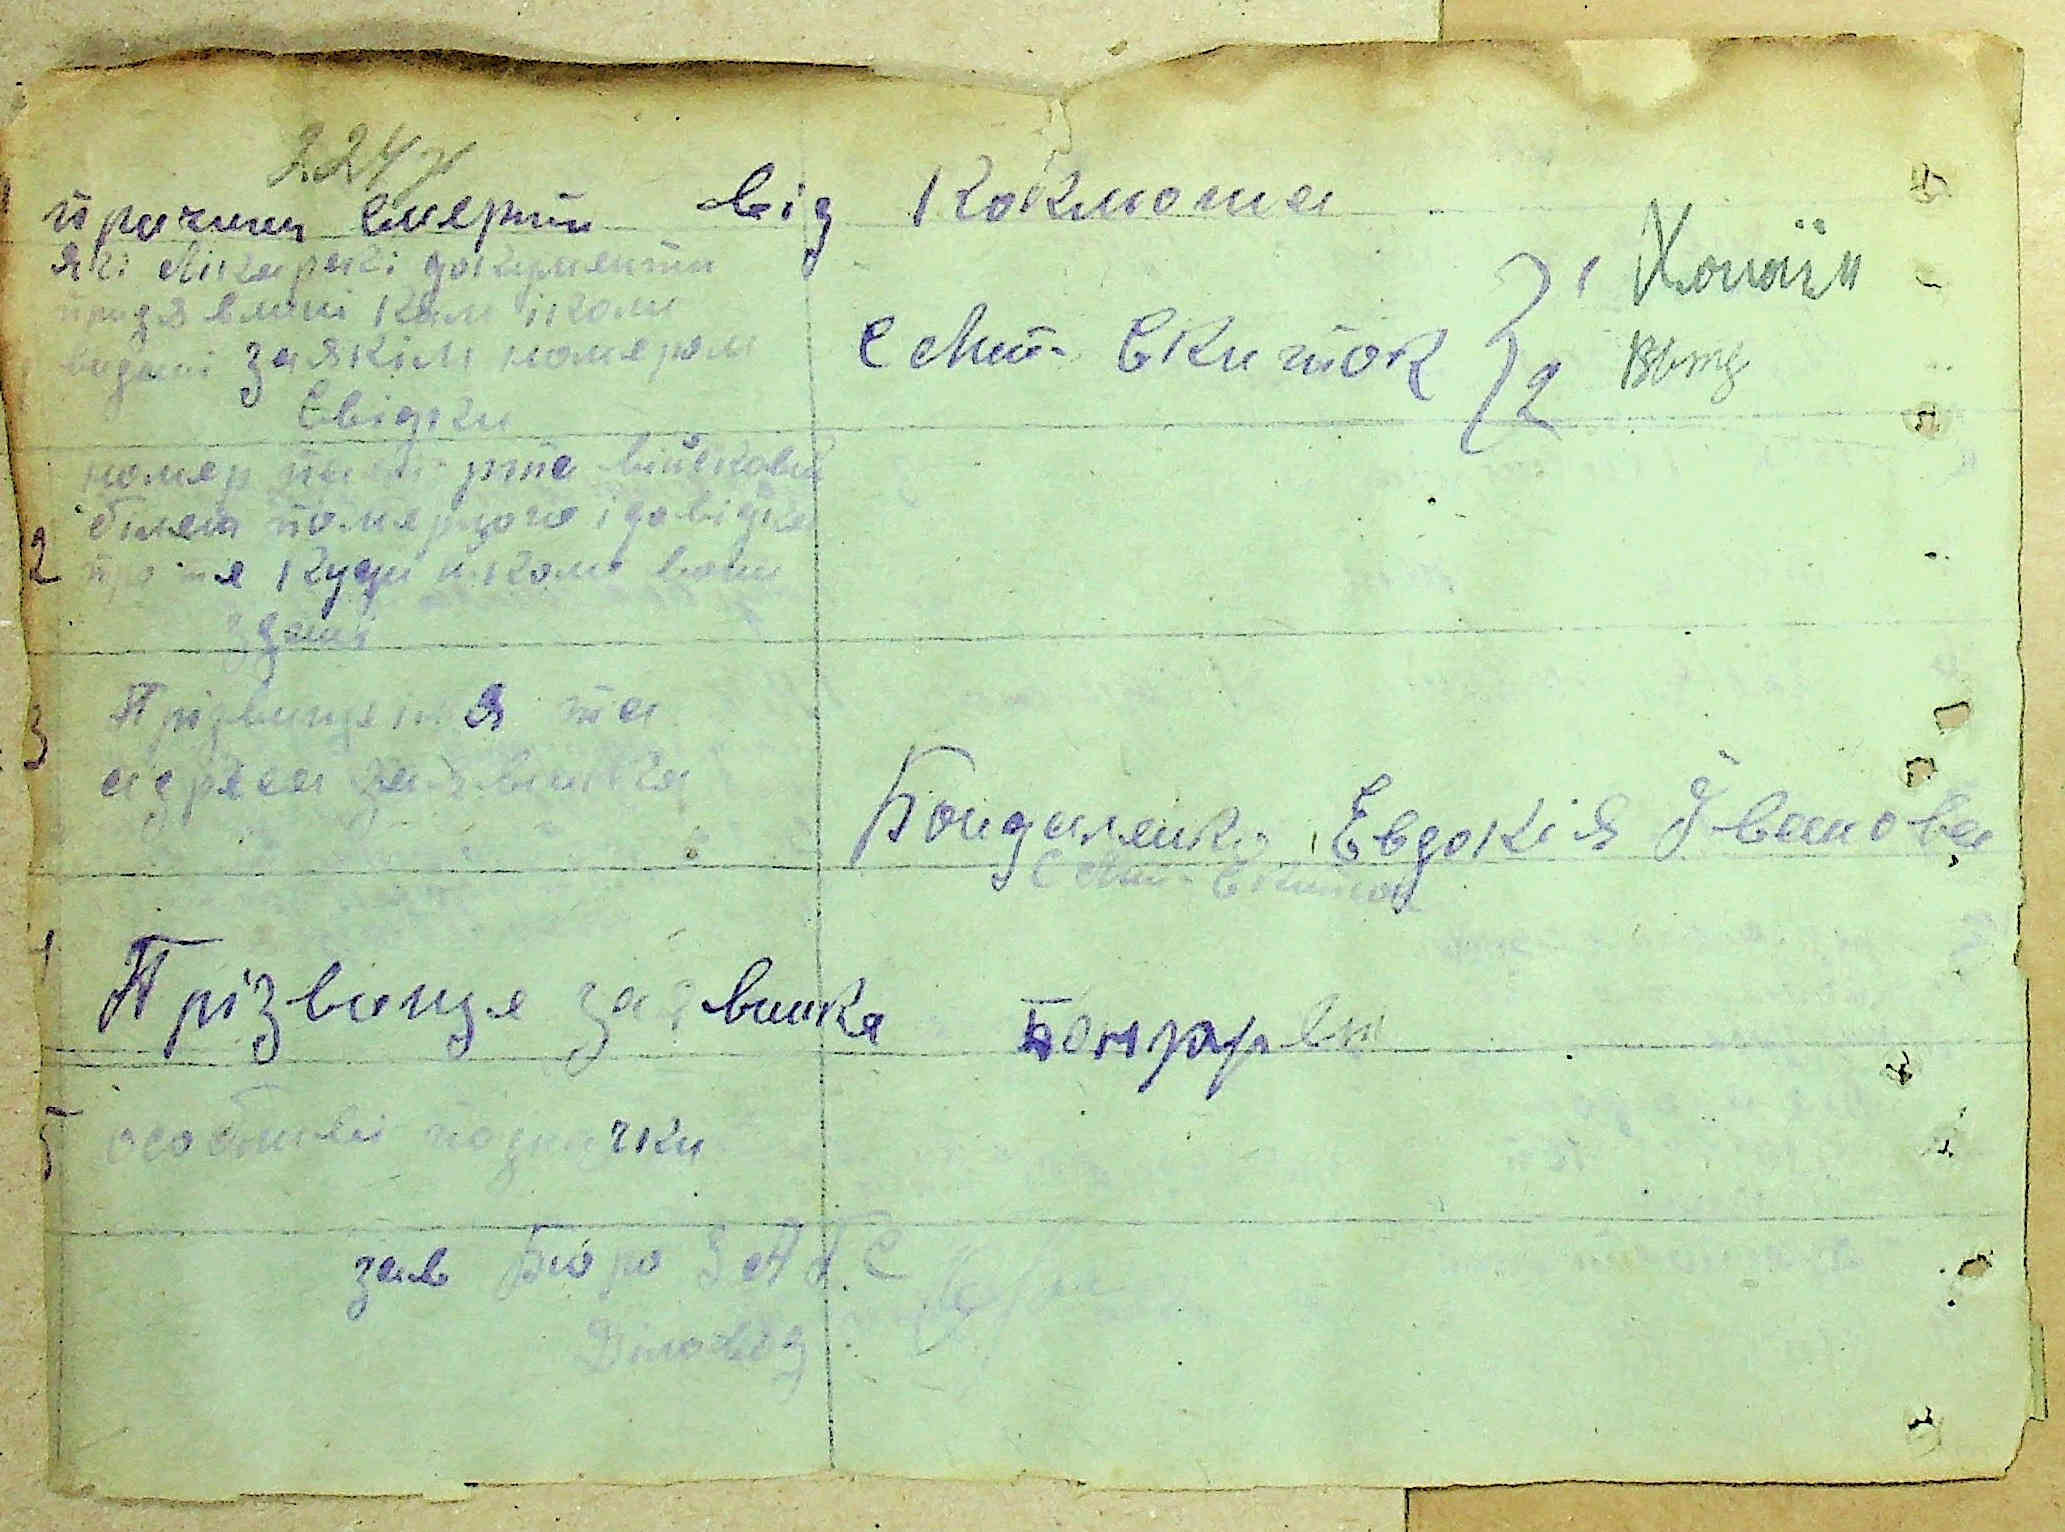 224
причина смерти від коклюша
які лікарські документи
пред'явлені ким і коли
видані за яким номером
Свідки
с Мит- Скиток
номер пасп-рта військовий
білет померцого і довідка
2 про те куди и коли вони
здані
3 Прізвище імя та
адреса заявника
Бондаленко Евдокія Йванова
с Мит- Скиток
Прізвище заявника
5 особливі позначки
зав Бюро ЗАГС
Діловод